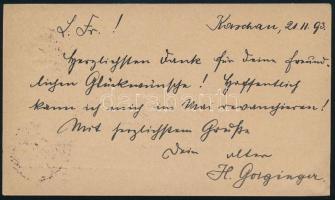 L. Fr. !
Kaschau, 20 II. 93.
Herzlichsten Dank für deine freund-
lichen Glückwünsche! Hoffentlich
kann ich mich im Mai revanchieren!
Mit herzlichstem Gruße
Dein alter
H.